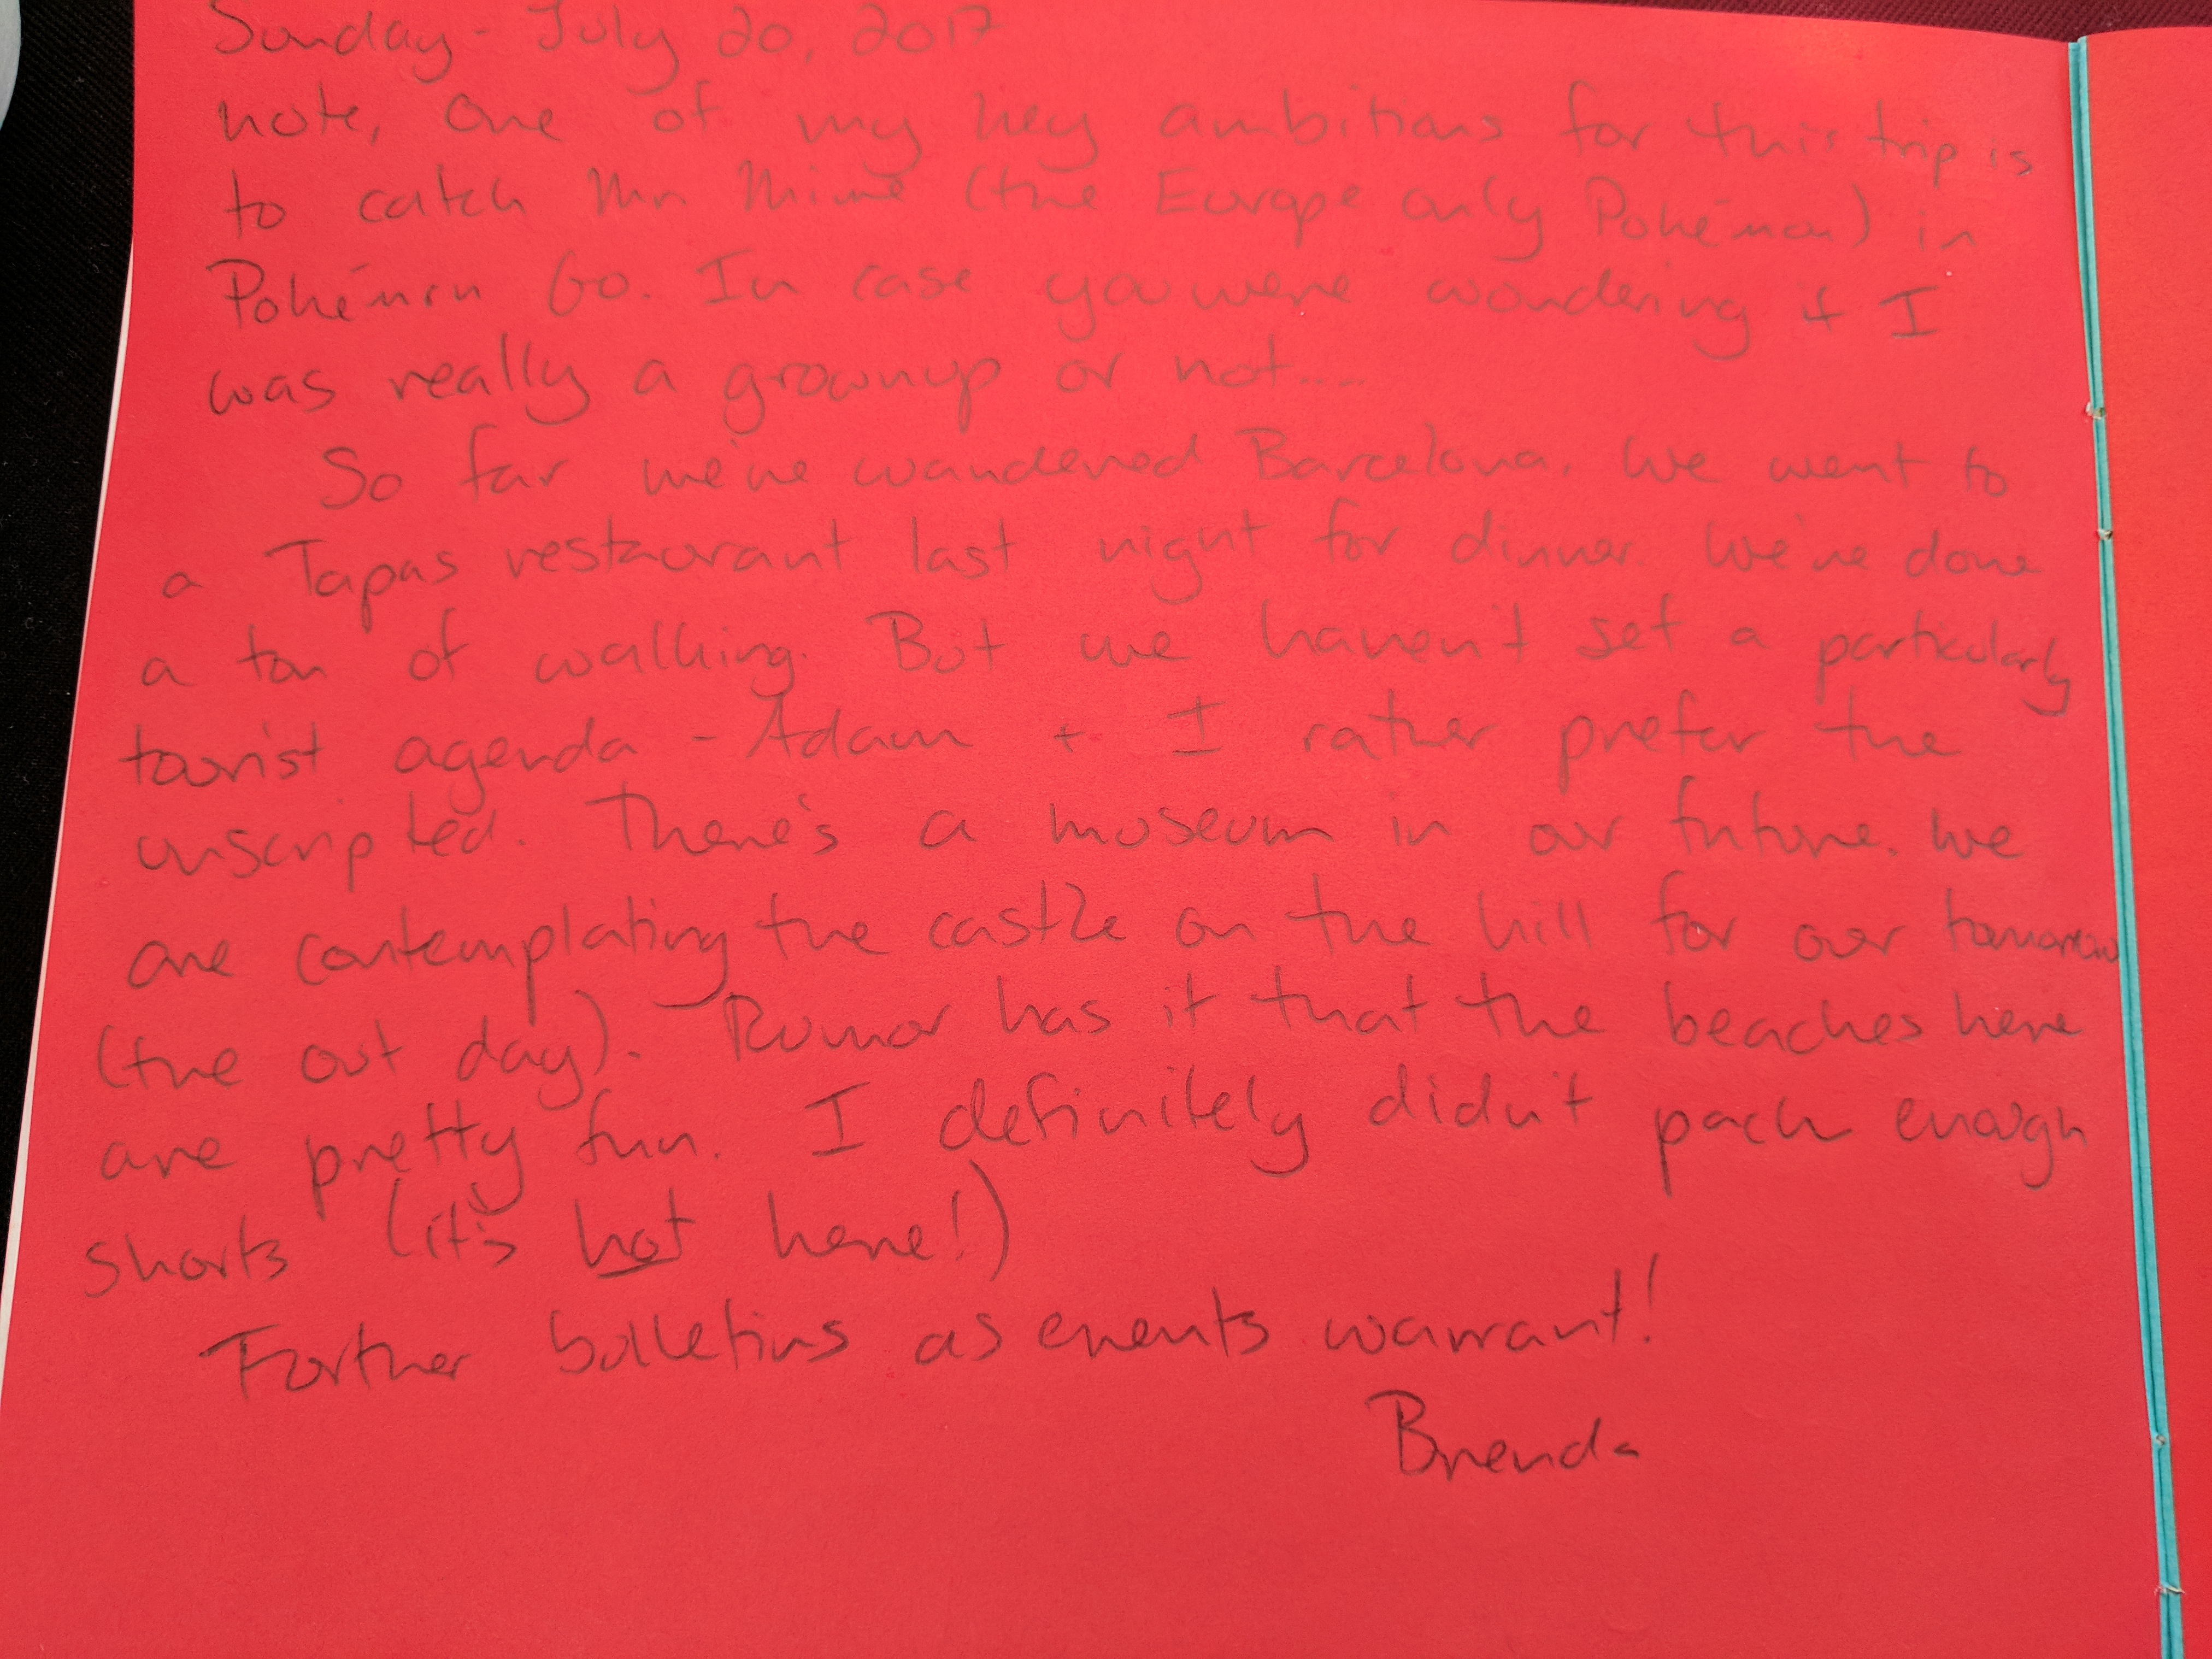 Sunday - July 20, 2017
note, one of my key ambitions for this trip is
to catch Mr. Mime (the Europe only Pokémon) in
Pokémon Go. In case you were wondering if I
was really a grownup or not....
So far we've wandered Barcelona. We went to
a Tapas restaurant last night for dinner. We've done
a ton of walking. But we haven't set a particularly
tourist agenda - Adam + I rather prefer the
unscripted. There's a museum in our future. We
are contemplating the castle on the hill for our tomorrow
(the out day). Rumor has it that the beaches here
are pretty fun. I definitely didn't pack enough
shorts (it's hot here!)
Further bulletins as events warrant!
Brenda